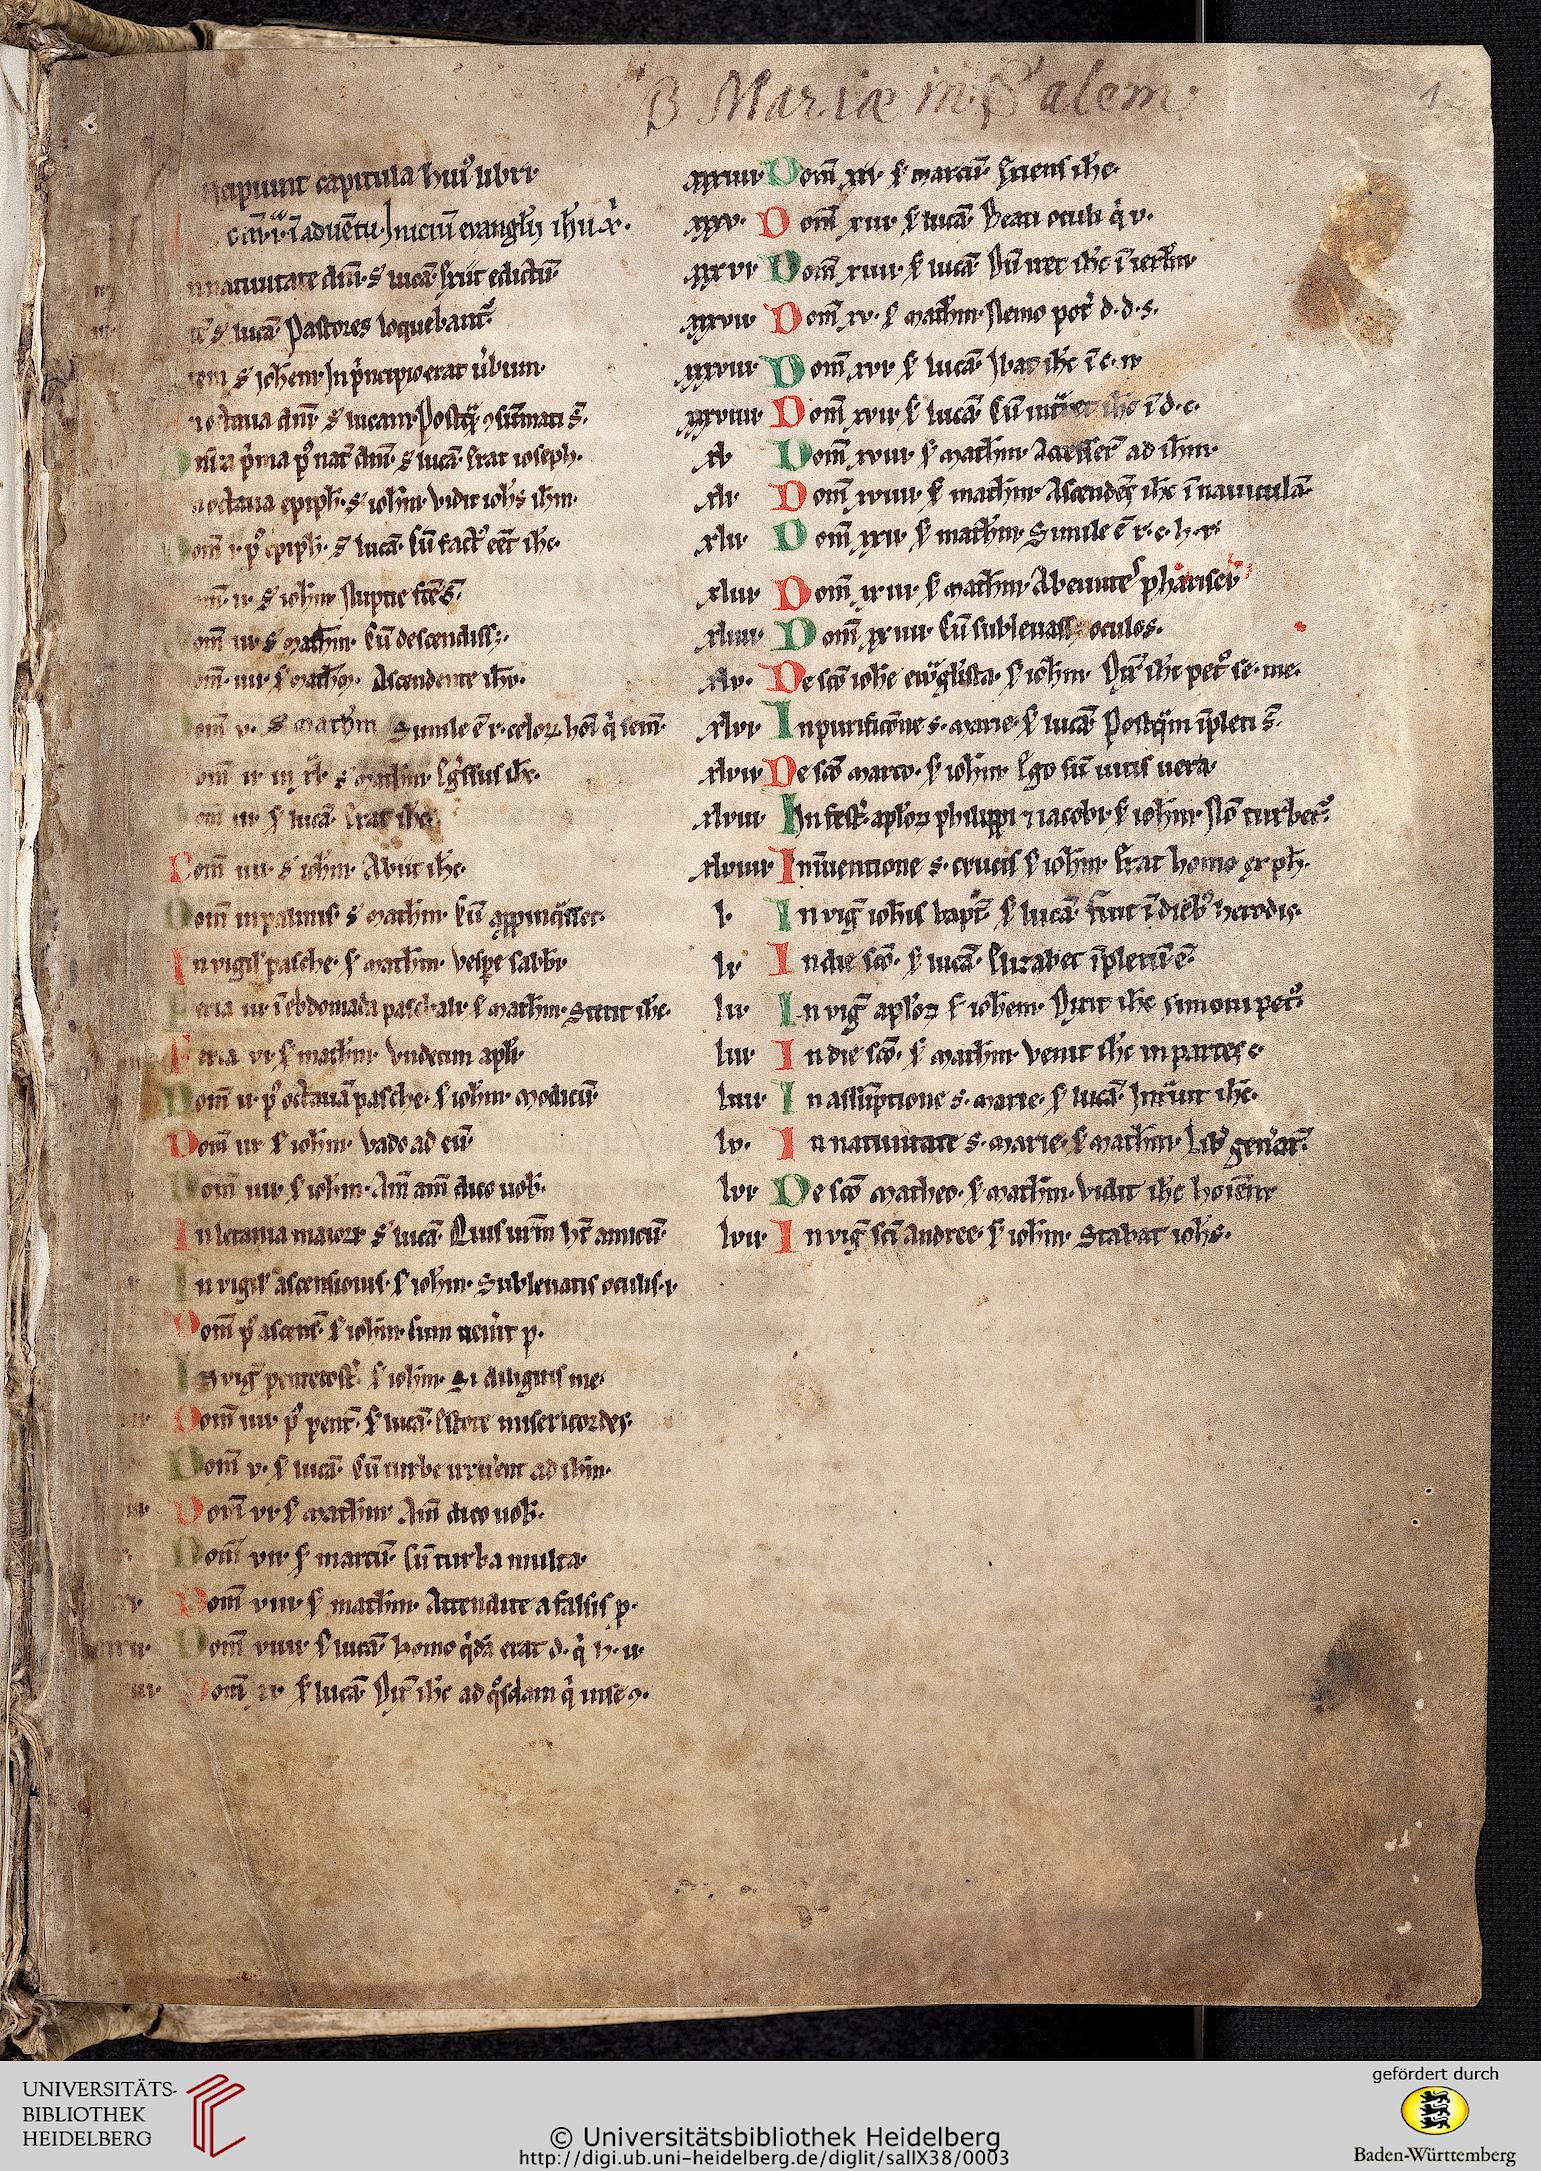 B Mariæ in Salem
1
ncipiunt capitula huiꝰ libri
in aduētu Iniciū evangelij ih̄u xp̄i.
n natiuitate dn̄i s̄ lucā Exiit edictū
s̄ lucā Pastores loquebant᷑
s̄ ioh̄em In p̄ncipio erat u̇bum
n octaua dn̄i s̄ lucam Postq̄ ꝯsūmati s̄.
p̄ma pꝰ nat̄ dn̄i s̄ lucā Erat ioseph.
n octaua epiph̄. s̄ ioh̄m vidit ioh̄s ih̄m.
om̄ i pꝰ epiph̄. s̄ lucā Cū factꝰ eēt ih̄c
om̄ ii s̄ ioh̄m Nuptie
om̄ iii s̄ math̄m Cū descendiss;.
om̄ iiii s̄ math̄m Ascendente ih̄u.
om̄ v. s̄ math̄m Simile ē r. celoꝝ
om̄ s̄ math̄m Egr̄ssus ih̄c.
om̄ iii s̄ lucā Erat ih̄c
Dom̄ iiii s̄ ioh̄m Abiit ih̄c
Dom̄ in palmis s̄ math̄m Cū
In vigil̄ pasche s̄ math̄m Vespe sabbi
Feria iii ī ebdomada paschali s̄ math̄m Stetit ih̄c
Feria vi s̄ math̄m Vndecim apl̄i
Dom̄ ii pꝰ octauā pasche s̄ ioh̄m Modicū
Dom̄ iii s̄ ioh̄m Vado ad eū
Dom̄ iiii s̄ ioh̄m Am̄ am̄ dico uob̄.
In letania maiori s̄ lucā Quis ur̄m h̄t amicū
In vigil̄ ascensionis s̄ ioh̄m Subleuatis oculis
Dom̄ pꝰ ascens̄ s̄ ioh̄m Cum uen̄it p.
In viḡ pentecost̄ s̄ ioh̄m Si diligitis me
Dom̄ iiii pꝰ pent̄ s̄ lucā Estote misericordes
Dom̄ v. s̄ lucā Cū turbe irruent ad ih̄m
Dom̄ vi s̄ math̄m Am̄ dico uob̄.
Dom̄ vii s̄ marcū Cū turba multa
Dom̄ viii s̄ math̄m Attendite a falsis p.
Dom̄ viiii s̄ lucā Homo q̄dā erat d. q̄ h. u
Dom̄ s̄ lucā Dix̄ ih̄c ad qꝰsdam q̄
xxxiiii Dom̄ xii s̄ marcū Exiens ih̄c
xxxv. Dom̄ xiii s̄ lucā Beati oculi q̄ v.
xxxvi Dom̄ xiiii s̄ lucā Dū iret ih̄c ī ierl̄m
xxxvii Dom̄ xv. s̄ math̄m Nemo pot̄ d. d. s.
xxxviii Dom̄ xvi s̄ lucā Ibat ih̄c ī c.
xxxviiii Dom̄ xvii s̄ lucā Cū int̄ret ih̄c ī d. c.
xl Dom̄ xviii s̄ math̄m Accesser̄ ad ih̄m
xli Dom̄ xviiii s̄ math̄m Ascendēs ih̄c ī nauiculā
xlii Dom̄ xxii s̄ math̄m Simile ē r. c. h. r.
xliii Dom̄ s̄ math̄m Abeuntes pharisei
xliiii Dom̄ xxiiii Cū subleuass; oculos.
xlv. De sc̄o ioh̄e ewglista s̄ ioh̄m Dix̄ ih̄c pet̊ se. me.
xlvi In purificōne s. marie s̄ lucā Postq̄m īpleti s̄.
xlvii De sc̄o marco s̄ ioh̄m Ego sū uitis uera
xlviii In fest̄ apl̄oꝝ philippi ⁊ iacobi s̄ ioh̄m Nō turbet᷑
xlviiii In inuentione s. crucis s̄ ioh̄m Erat homo ex ph̄.
l. In viḡ ioh̄is bapt̄ s̄ lucā Fuit ī diebꝰ herodis
li In die sc̄o s̄ lucā Elizabet īpletū ē
lii In viḡ apl̄oꝝ s̄ ioh̄em Dixit ih̄c simoni pet̊
liii In die sc̄o s̄ math̄m Venit ih̄c in partes c
liiii In assūptione s. marie s̄ lucā Int̄uit ih̄c
lv. In natiuitate s. marie s̄ math̄m Lib̄ gen̄at̄.
lvi De sc̄o matheo s̄ math̄m Vidit ih̄c hoīem
lvii In viḡ sc̄i andree s̄ ioh̄m Stabat ioh̄s.
UNIVERSITÄTS-
BIBLIOTHEK
HEIDELBERG
© Universitätsbibliothek Heidelberg
http://digi.ub.uni-heidelberg.de/diglit/salIX38/0003
gefördert durch
Baden-Württemberg